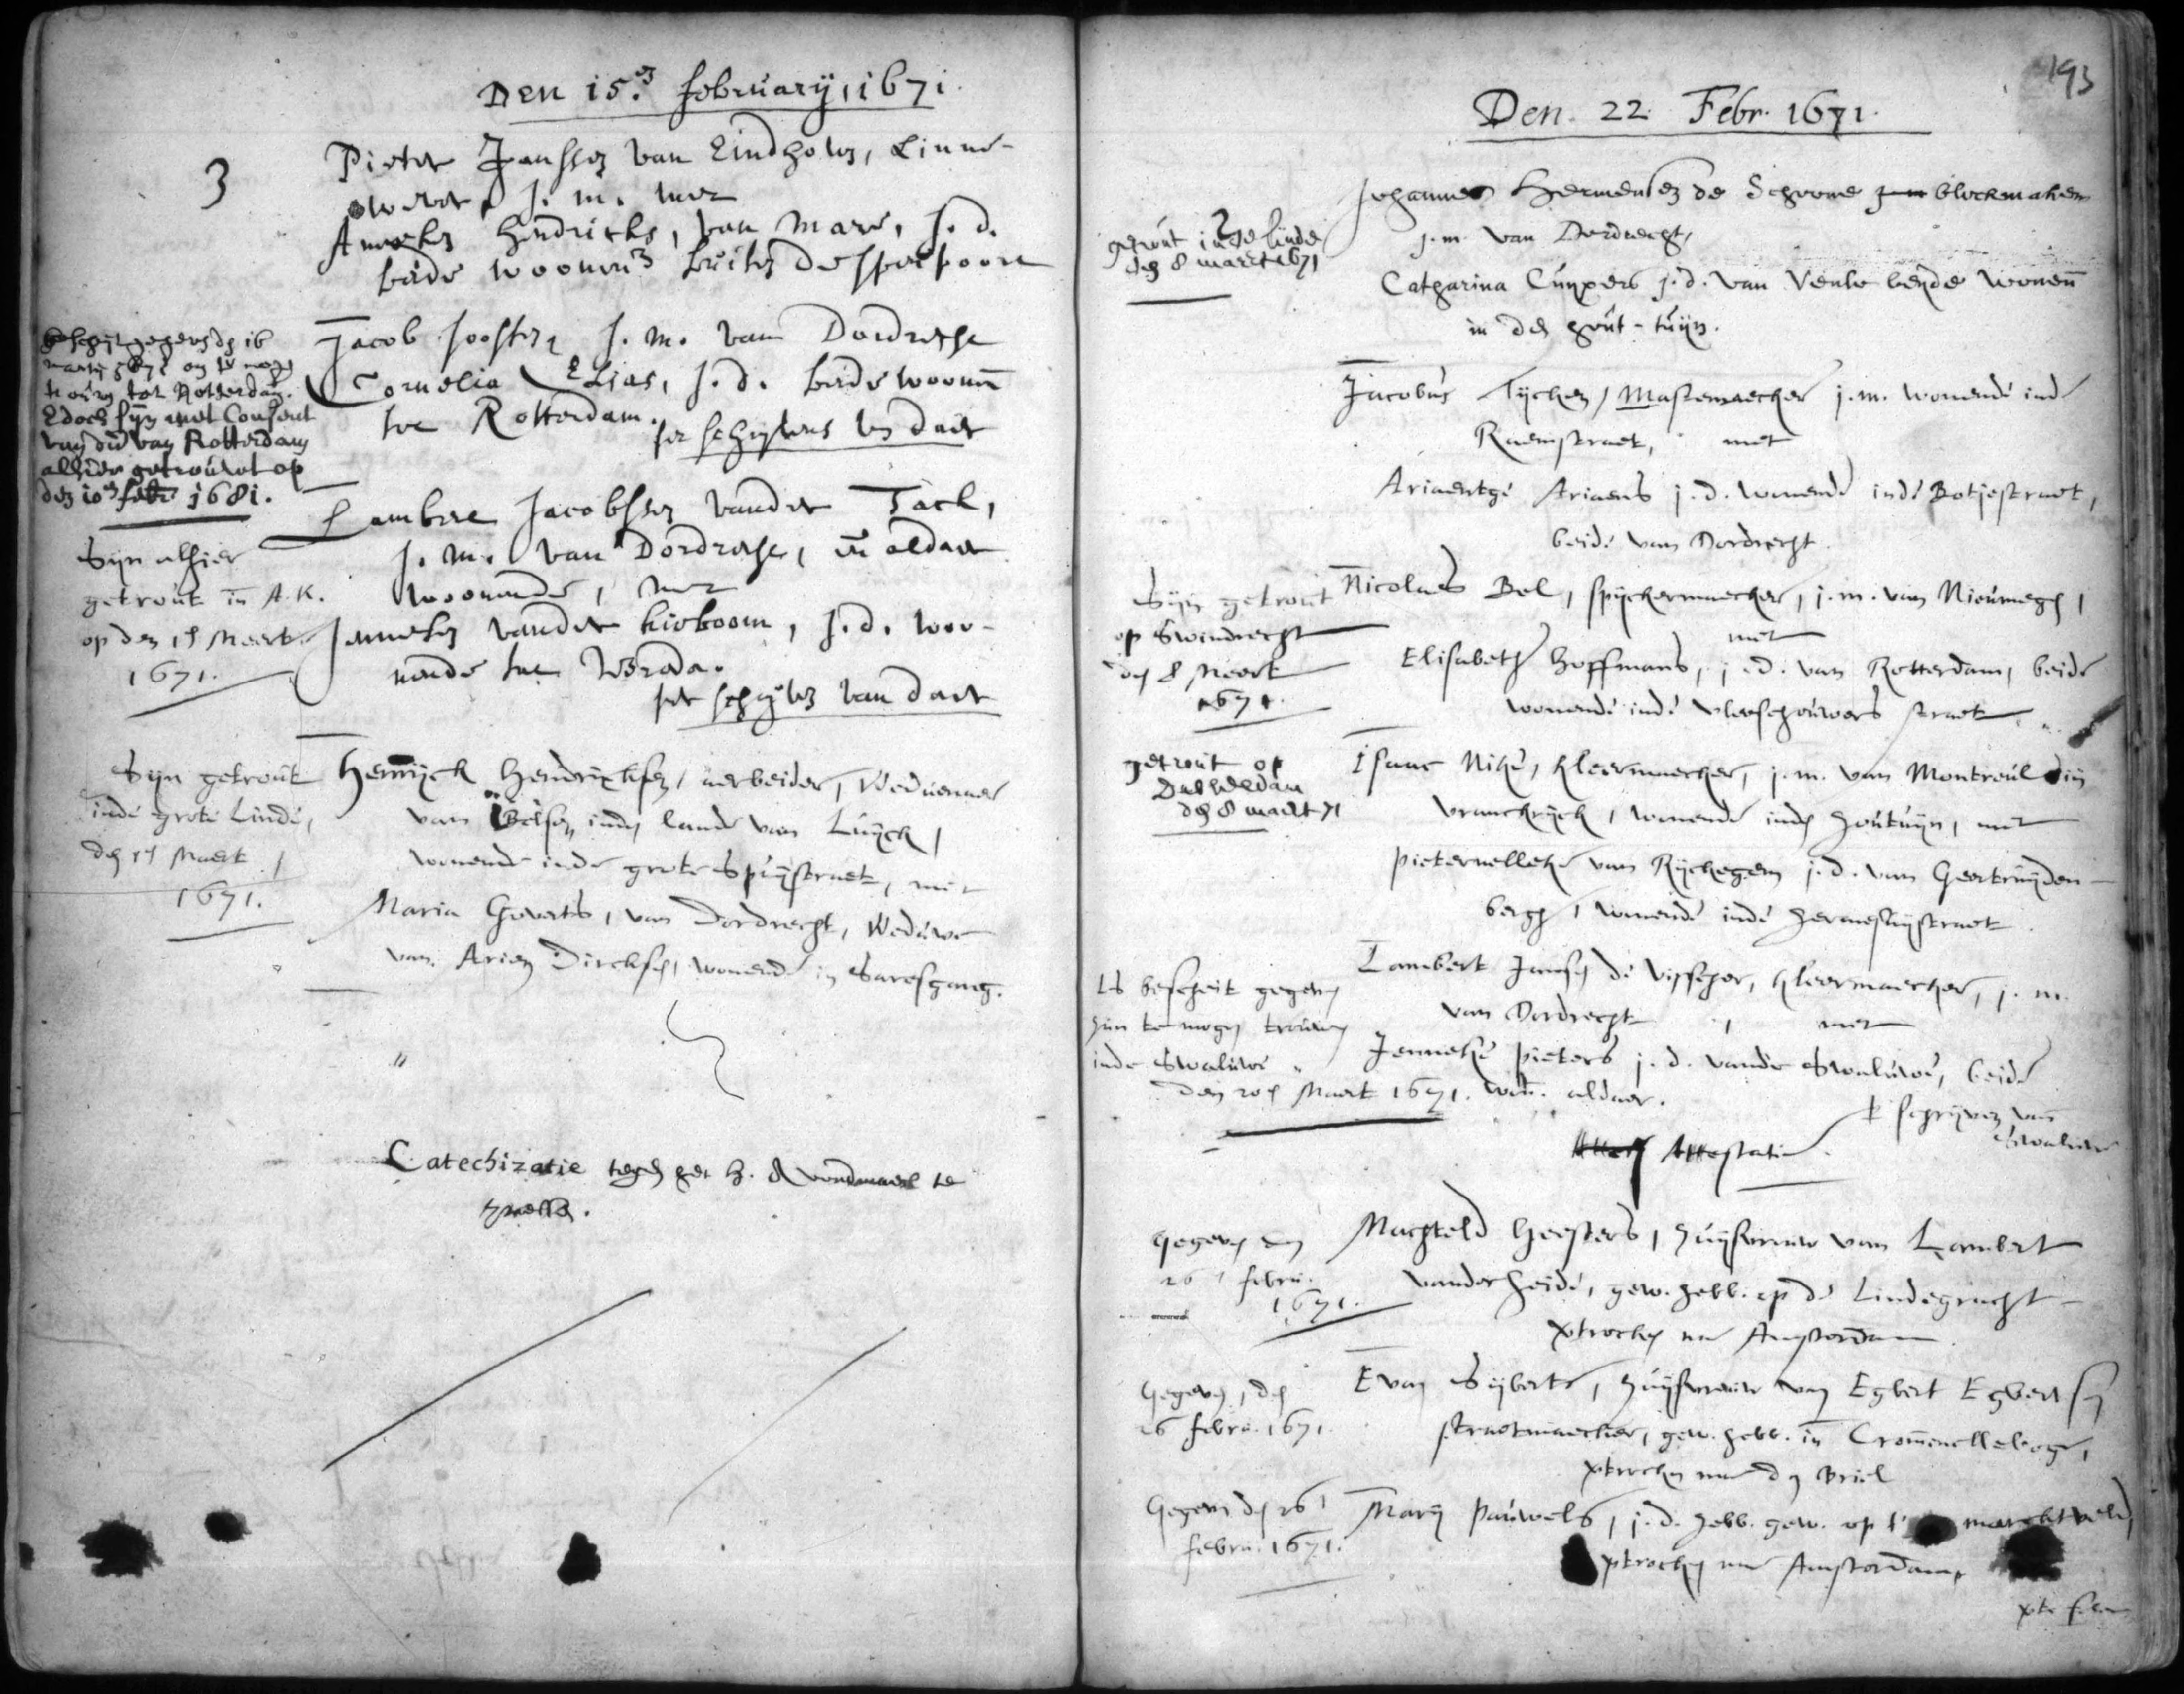 Den 15.en february, 1671.
3
Pieter Janssen van Eindhoven, Linne-
wever, j. m. met
Anneken Hendricks, van Mare, j. d.
beide woonende buiten de spuipoort
bescheyt gegeven den 16
Martij 1671 om te mogen
trouwen tot Rotterdam.
Edoch sijn met Consent
van die van Rotterdam
alhier getrouwet op
den 10en febr 1681.
Jacob Joosten j. m. van Dordrecht
Cornelia Elias, j. d. beide woonende
tot Rotterdam.
per schrijvens van daer
Sijn alhier
getrout in A. K.
op den 15 Meert
1671.
Lambert Jacobssen vander Tack,
j. m. van Dordrecht, en aldaer
woonende, met
Jenneken vander kieboom, j. d. woo-
nende tot Breda.
per schrijven van daer
Sijn getrout
inde grote Linde,
den 15 Maert
1671.
Henrijck Hendrixksen, aerbeider, Weduenaer
van Bilsen, inden lande van Luyck,
wonende inde grote Spuijstraet, met
Maria Goverts, van Dordrecht, Weduwe
van Arien Dircksen, wonende in Sarisgang.
Catechizatie tegen het H. Avondmael te
houden.
193
Den. 22. Febr. 1671.
getrout in de linde
den 8 maert 1671
Johannes Hermensen de Schoone blockmaker
j. m. van Dordrecht,
Catharina Cuypers j. d. van Venlo beyde wonen
in den hout-tuyn.
Jacobus Tijcken, Mastemaecker j. m. wonende inde
Raemstraet, met
Ariaentge Ariaens j. d. wonende inde Botjestraet,
beide van Dordrecht.
Sijn getrout
op Swindrecht
den 8 Meert
1671.
Nicolaes Bel, spijckermaecker, j. m. van Nieumegen,
met
Elisabeth Hoffmans, j. d. van Rotterdam, beide
wonende inde vleeschouwers straet.
getrout op
Dubbeldam
den 8 maert 71
Isaac Niké, kleermaecker, j. m. van Montreul in
vranckrijck, wonende inden houtuijn, met
pieternelleke van Rijckegem j. d. van Geertruijden-
bergh, wonende inde heremeslijstraet.
Is bescheit gegeven
hun te mogen trouwen
inde Swaluwe
den 20en Maert 1671.
Lambert Jansen de visscher, kleermaecker, j. m.
van Dordrecht, met
Jenneke pieters j. d. vande Swaluwe, beide
won. aldaer.
p schrijven van
Swaluwe
Attestatie.
Gegeven den
26 febru.
1671.
Machteld Geesters, huijsvrouw van Lambert
vander heide, gew. hebb. op de Lindegracht
vertrocken na Amsterdam
Gegeven, den
26 febru. 1671.
Eva Sijberts, huijsvrouw van Egbert Egbertsen
straetmaecker, gew. hebb. in Crommenelleboge,
vertrocken na den Briel
Gegeven den 26
febru. 1671.
Marij Pauwels, j. d. hebb. gew. op t' marcktveld,
vertrocken na Amsterdam,